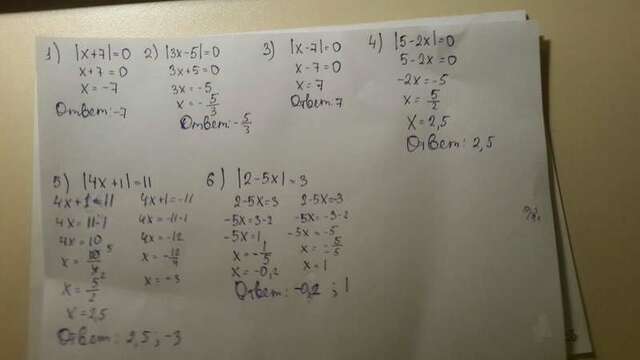 1) |x+7|=0
x+7=0
x=-7
Ответ: -7
2) |3x-5|=0
3x+5=0
3x=-5
x=-5/3
Ответ: -5/3
3) |x-7|=0
x-7=0
x=7
Ответ: 7
4) |5-2x|=0
5-2x=0
-2x=-5
x=5/2
x=2,5
Ответ: 2,5
5) |4x+1|=11
4x+1=11
4x=11-1
4x=10
x=10/4
x=5/2
x=2,5
4x+1=-11
4x=-11-1
4x=-12
x=-12/4
x=-3
Ответ: 2,5; -3
6) |2-5x|=3
2-5x=3
-5x=3-2
-5x=1
x=-1/5
x=-0,2
2-5x=-3
-5x=-3-2
-5x=-5
x=-5/-5
x=1
Ответ: -0,2; 1